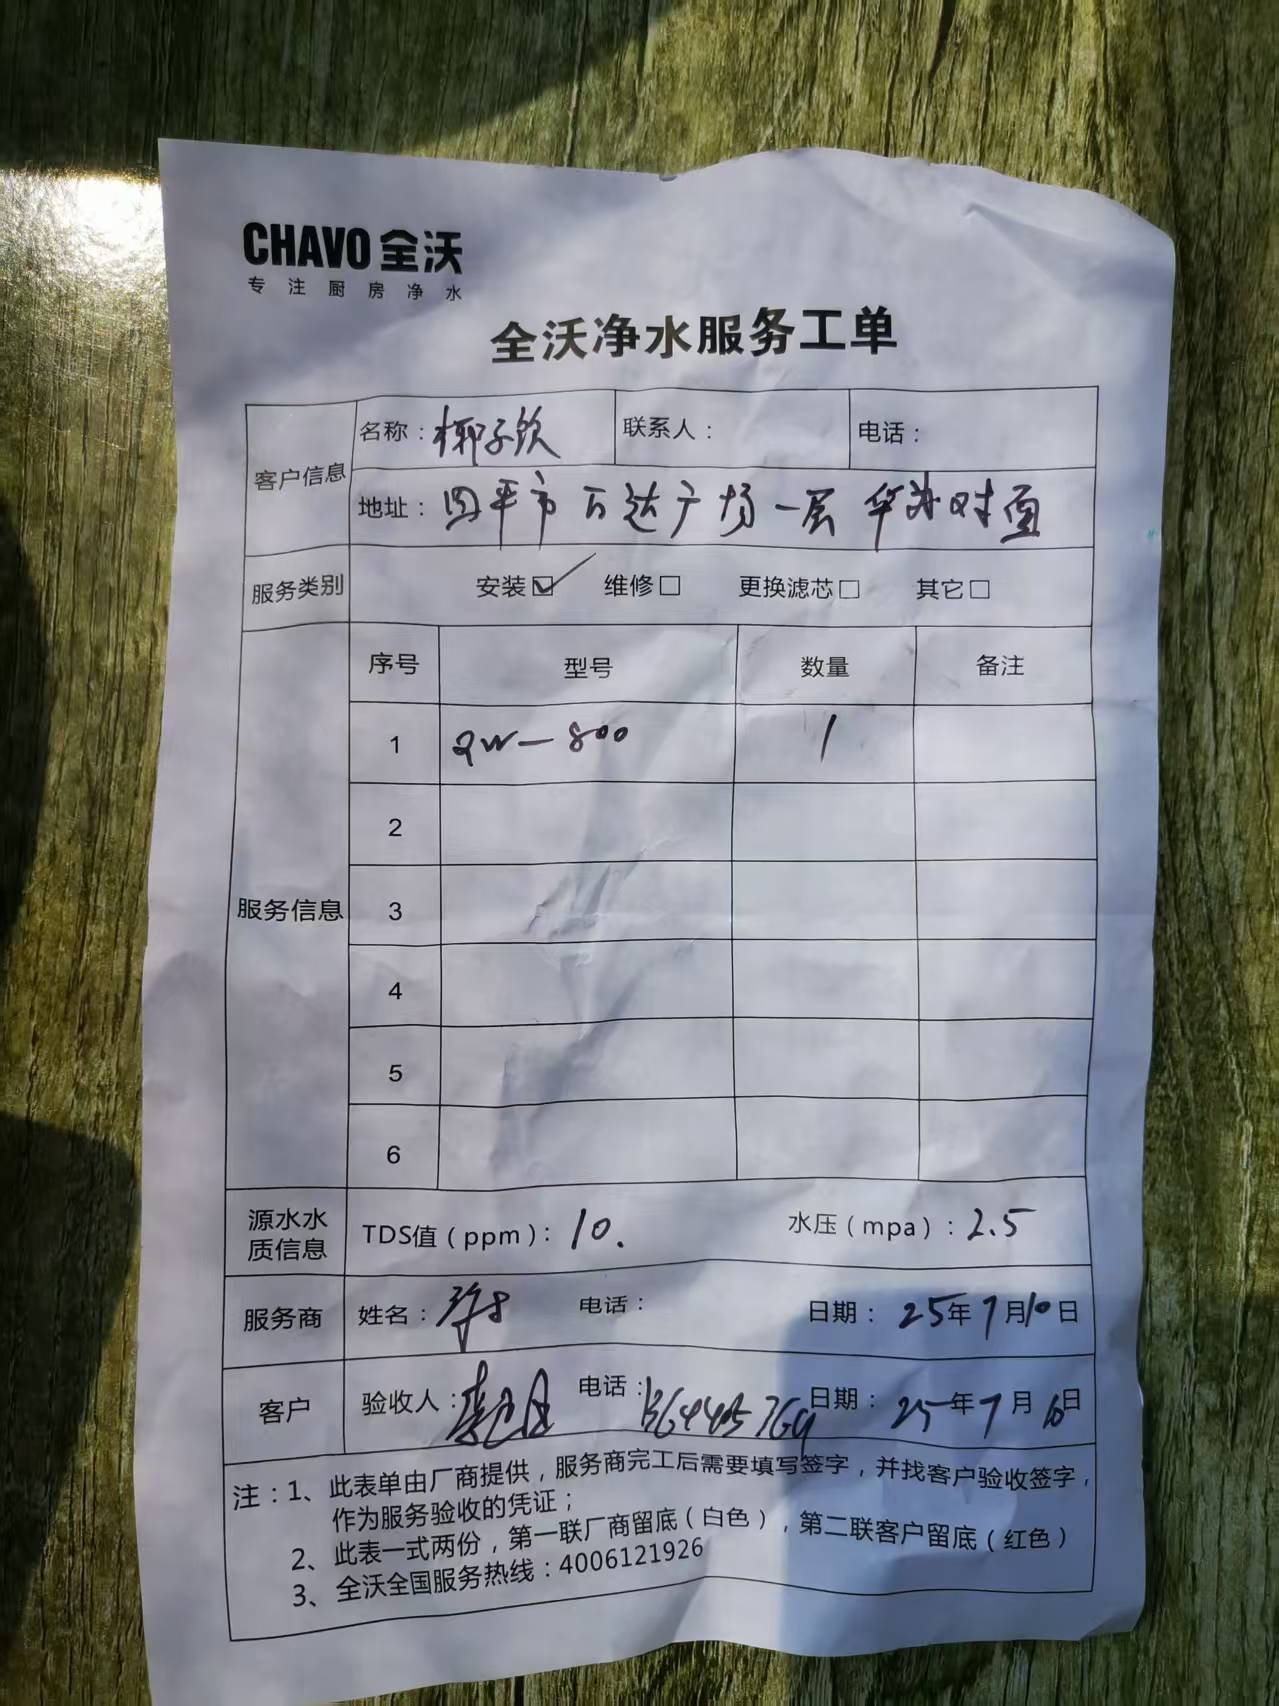 CHAVO 全沃
专注厨房净水
全沃净水服务工单
客户信息
名称：椰子饮 联系人： 电话：
地址：四平市万达广场一层 华为对面
服务类别 安装☑ 维修□ 更换滤芯□ 其它□
服务信息
序号 型号 数量 备注
1 QW-800 1
2
3
4
5
6
源水水质信息 TDS值（ppm）：10. 水压（mpa）：2.5
服务商 姓名： 电话： 日期：25年7月10日
客户 验收人： 电话： 日期：25年7月10日
注：1、此表单由厂商提供，服务商完工后需要填写签字，并找客户验收签字，
作为服务验收的凭证；
2、此表一式两份，第一联厂商留底（白色），第二联客户留底（红色）
3、全沃全国服务热线：4006121926